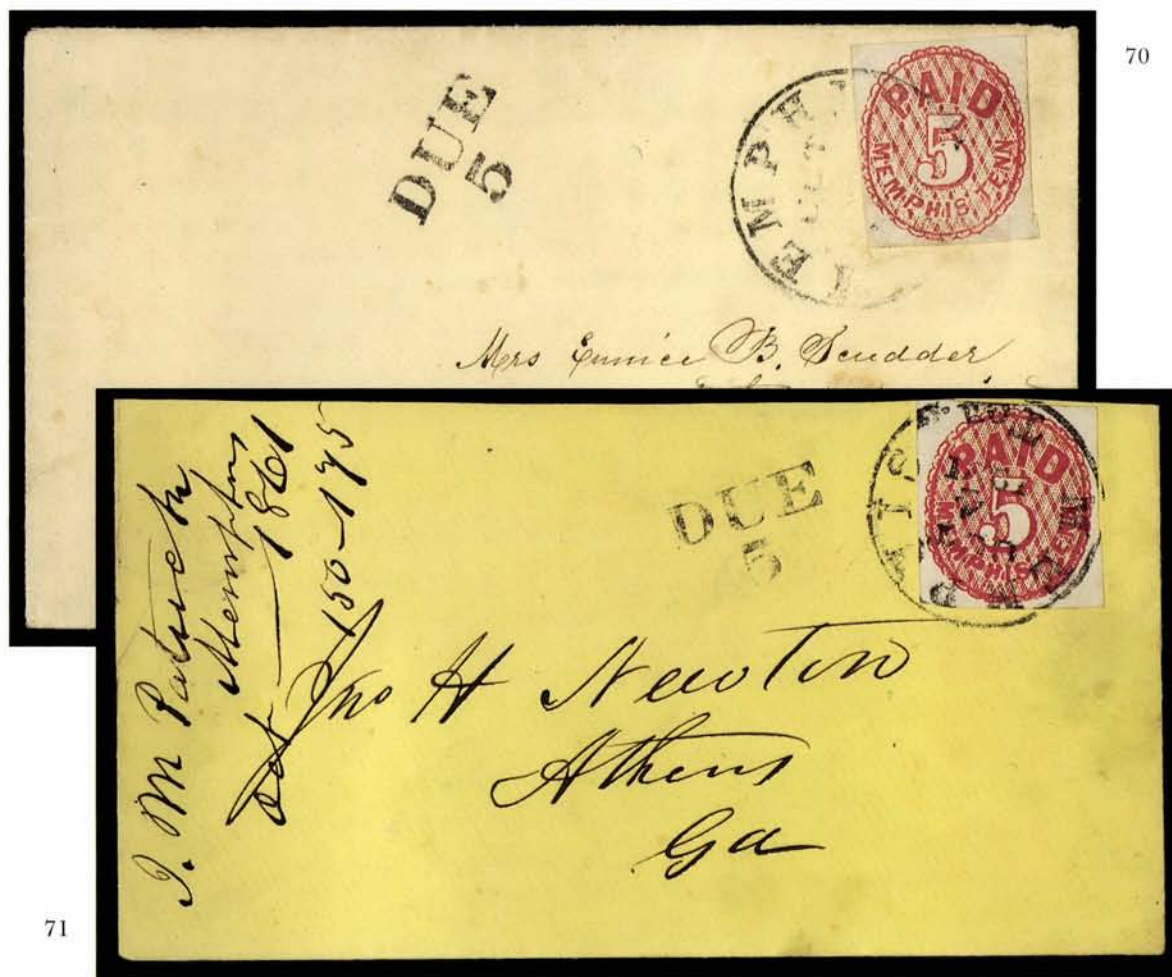 70
DUE
5
MEMPHI
OCT
PAID
5
MEMPHIS, TENN
Mrs Eunice B. Scudder
71
J. M. Patrick
Memphis
1861
150-175
DUE
5
PAID
5
MEMPHIS, TENN
Jno H Newton
Athens
Ga